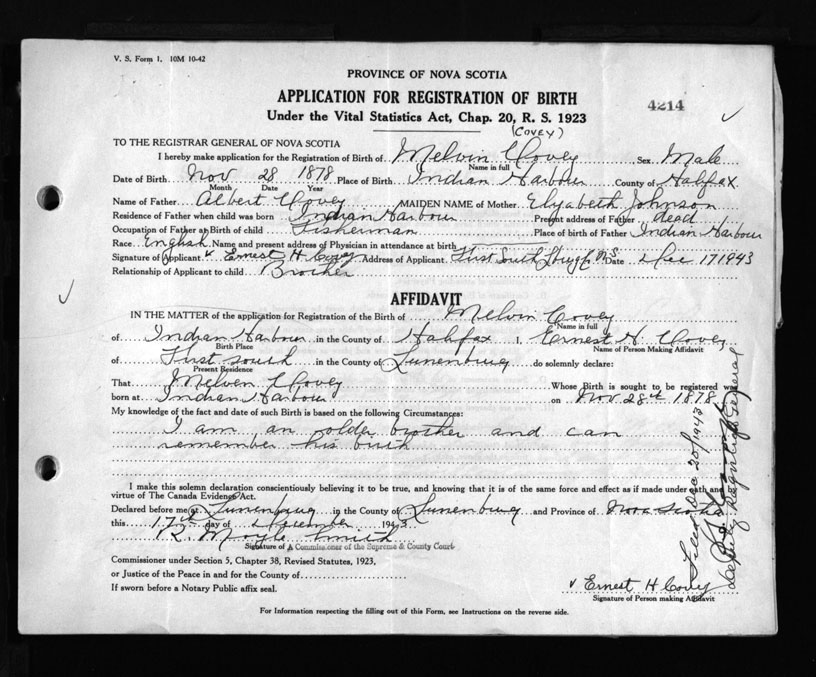 V. S. Form 1. 10M 10-42
PROVINCE OF NOVA SCOTIA
APPLICATION FOR REGISTRATION OF BIRTH
4214
Under the Vital Statistics Act, Chap. 20, R. S. 1923
(COVEY)
TO THE REGISTRAR GENERAL OF NOVA SCOTIA
I hereby make application for the Registration of Birth of Melvin Covey Sex Male
Name in full
Date of Birth Nov 28 1878 Place of Birth Indian Harbour County of Halifax
Month Date Year
Name of Father Albert Covey MAIDEN NAME of Mother Elyzabeth Johnson
Residence of Father when child was born Indian Harbour Present address of Father dead
Occupation of Father at Birth of child Fisherman Place of birth of Father Indian Harbour
Race English Name and present address of Physician in attendance at birth
Signature of Applicant v Ernest H Covey Address of Applicant First South N.S. Date Dec 17 1943
Relationship of Applicant to child Brother
AFFIDAVIT
IN THE MATTER of the application for Registration of the Birth of Melvin Covey
Name in full
of Indian Harbour in the County of Halifax I, Ernest H. Covey
Birth Place Name of Person Making Affidavit
of First South in the County of Lunenburg do solemnly declare:
Present Residence
That Melven Covey Whose Birth is sought to be registered was
born at Indian Harbour on Nov 28th 1878
My knowledge of the fact and date of such Birth is based on the following Circumstances:
I am an older brother and can
remember his birth
I make this solemn declaration conscientiously believing it to be true, and knowing that it is of the same force and effect as if made under oath and
virtue of The Canada Evidence Act.
Declared before me at Lunenburg in the County of Lunenburg and Province of Nova Scotia
this 17th day of December 1943
R. Moyle Smith
Signature of A Commissioner of the Supreme & County Court
Commissioner under Section 5, Chapter 38, Revised Statutes, 1923,
or Justice of the Peace in and for the County of
If sworn before a Notary Public affix seal.
v Ernest H Covey
Signature of Person making Affidavit
For Information respecting the filling out of this Form, see Instructions on the reverse side.
Filed Dec 20/1943
Deputy Registrar General